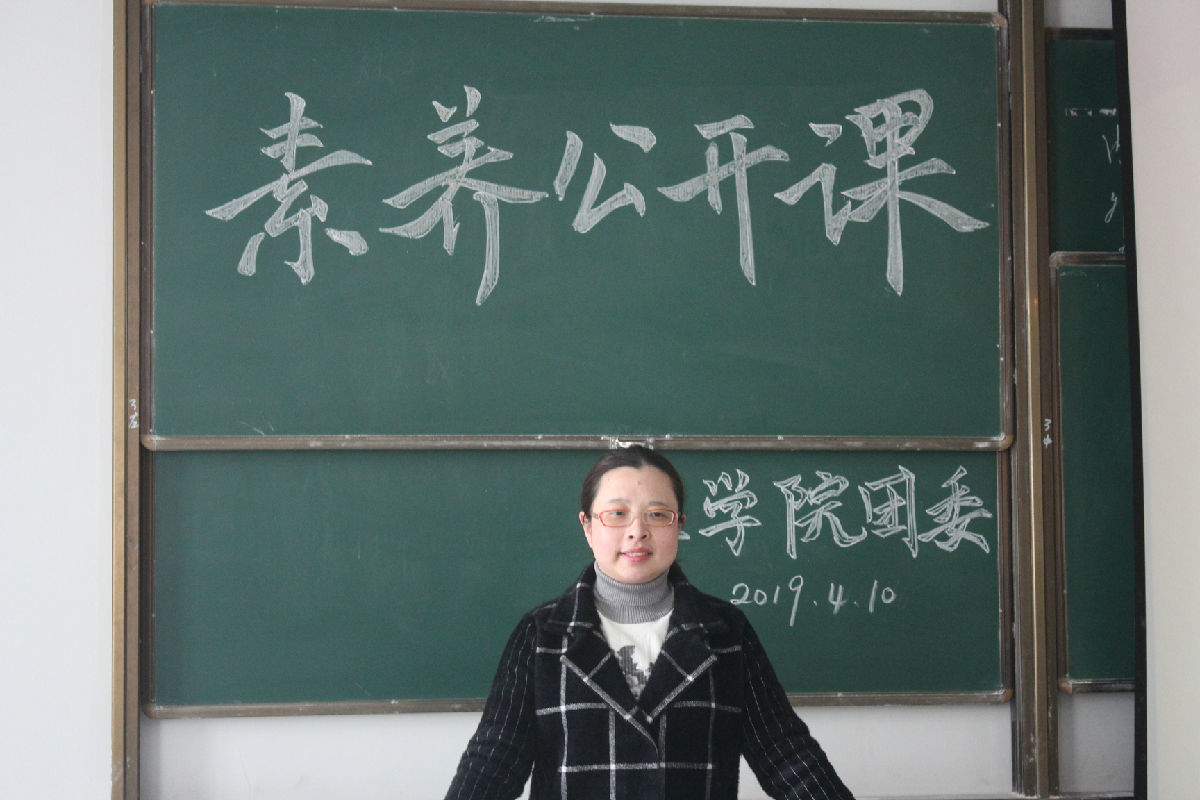 素养公开课
学院团委
2019.4.10